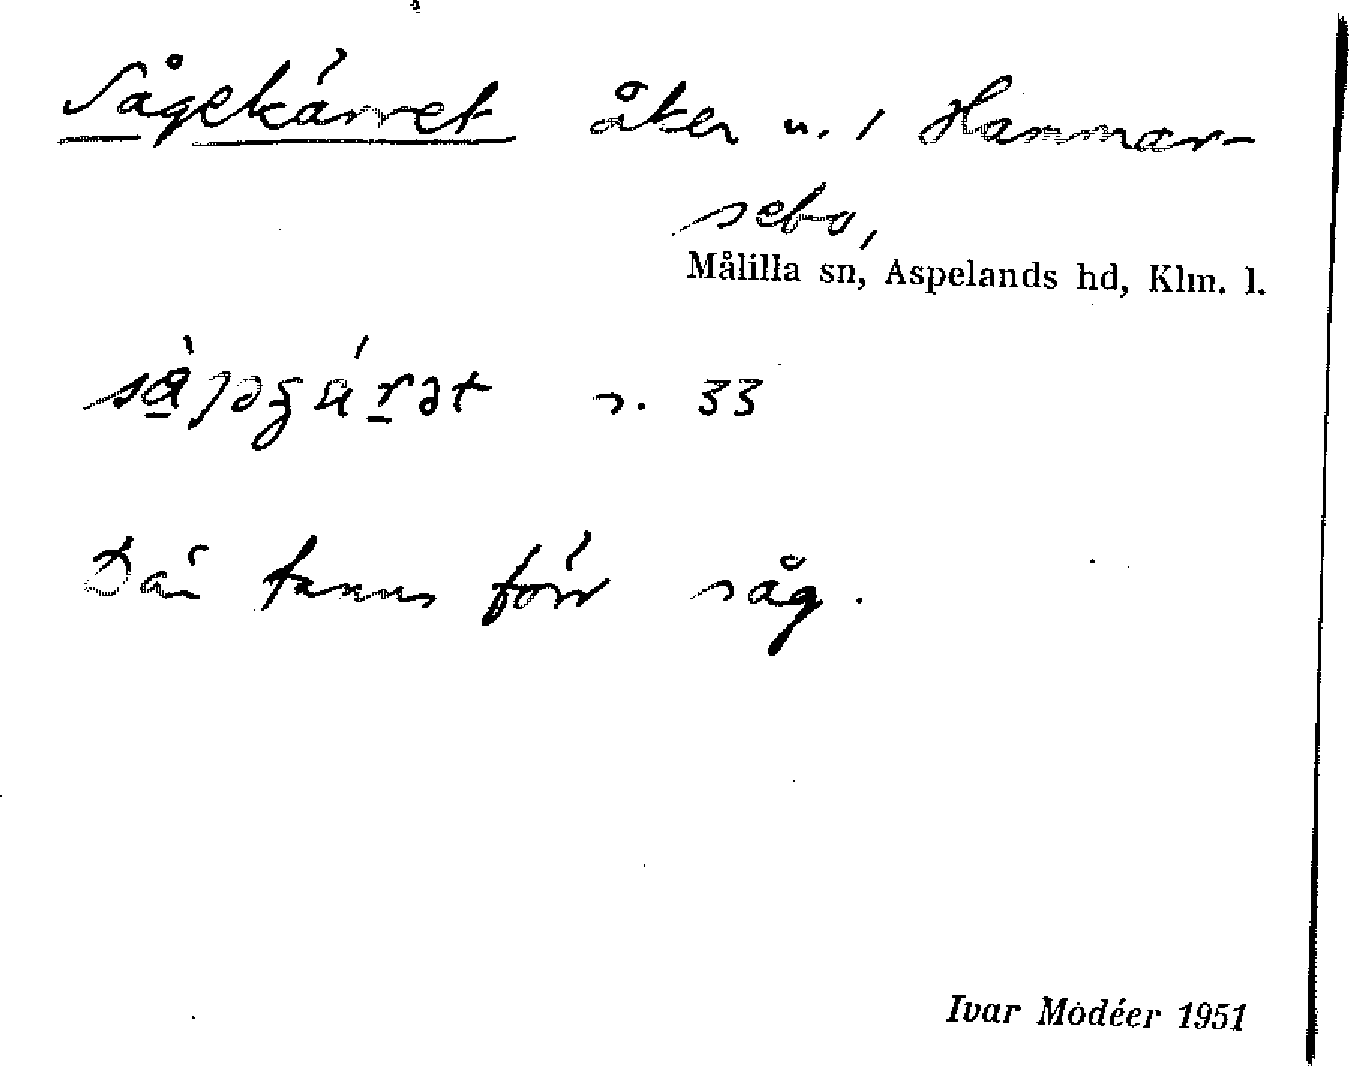 Sågekärret åker u. i Hammar-
sebo,
Målilla sn, Aspelands hd, Klm. l.
s. 33
Där fanns förr såg.
Ivar Modéer 1951